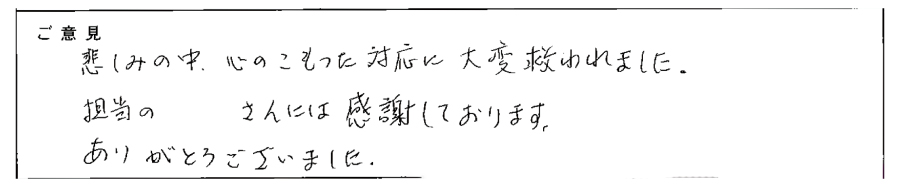 ご意見
悲しみの中、心のこもった対応に大変救われました。
担当の　　　さんには感謝しております。
ありがとうございました。